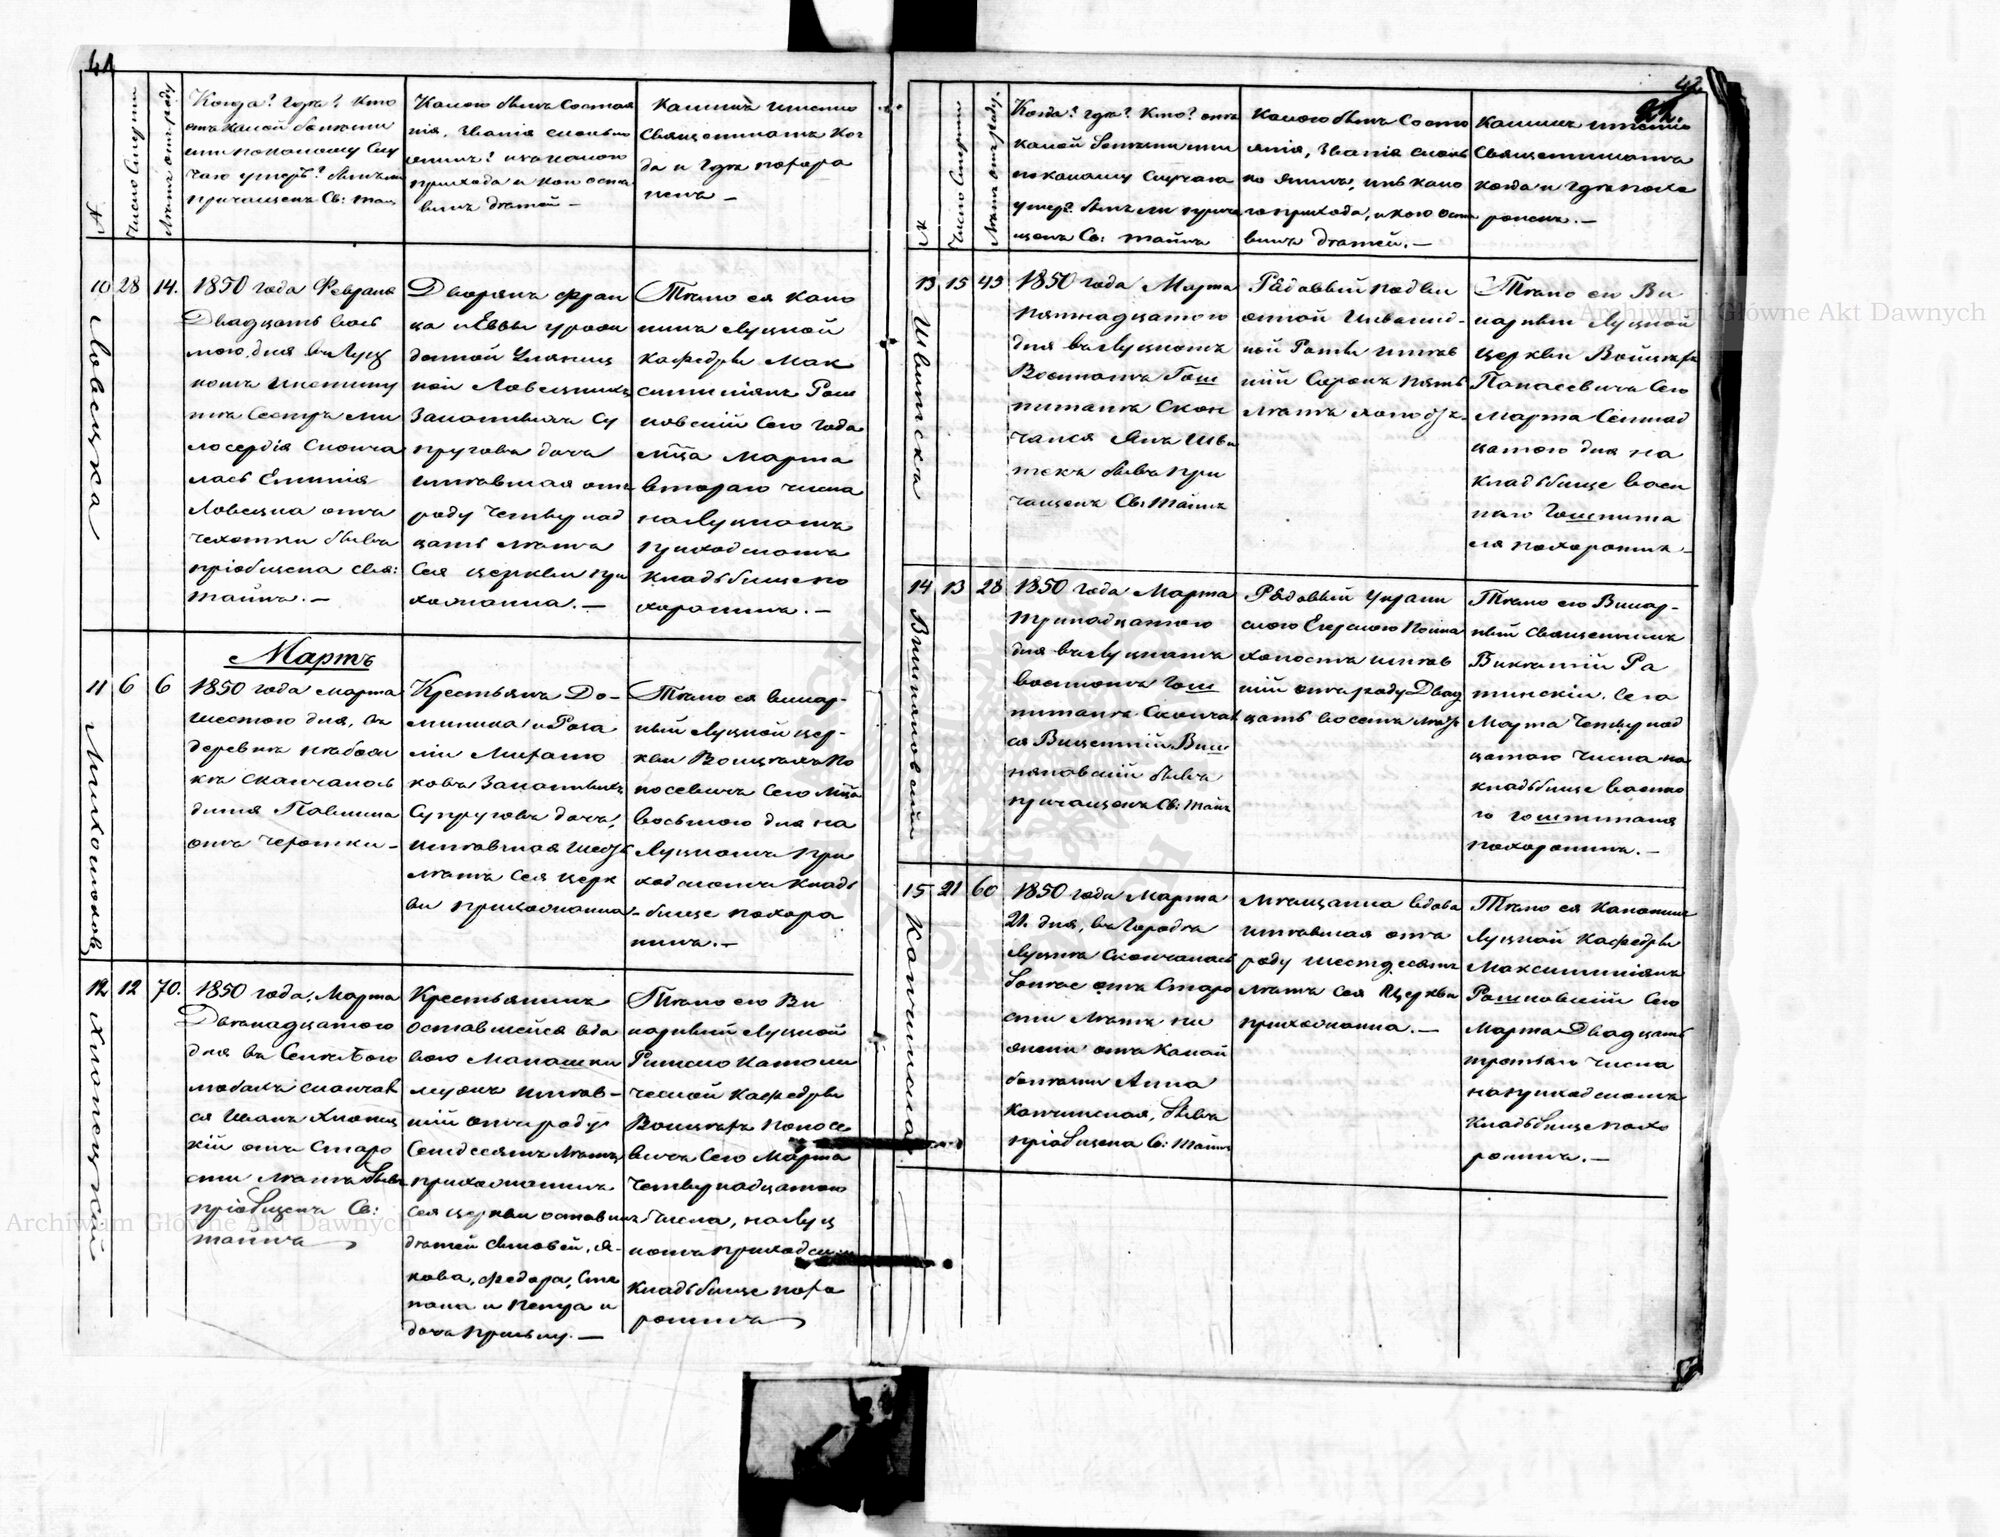 41
№
Число Смерти
Лета отъ роду
Когда? Где? Кто
отъ какой болезни
или по какому Слу
чаю умеръ? былъ ли
причащенъ Св: Таин
Какого былъ Состоя
нія, Званія сколько
летъ? изъ какого
прихода и кого оста
вилъ детей —
Какимъ именно
Священникомъ Ког
да и Где похоро
ненъ —
10
28
14.
Ловецка
1850 года Февраля
Двадцать вось
мого дня въ Луц
комъ Институ
те Сестръ Ми
лосердія Сконча
лась Емилія
Ловецка отъ
чехотки бывъ
пріобщена Свя:
Тайнъ. —
Дворянъ Фран
ца и Еввы урож
денной
ной Ловецкихъ
Законныхъ Су
пруговъ дочь
имевшая отъ
роду Четырнад
цать летъ
Сея церкви при
хожанка. —
Тело ея Кано
никъ Луцкой
Кафедры Мак
симиліянъ Рош
ковскій Сего года
М-ца Марта
втораго числа
на Луцкомъ
приходскомъ
Кладбище по
хоронилъ. —
Мартъ
11
6
6
1850 года Марта
шестого дня, въ
деревне
скончалось
дитя Павлина
отъ чехотки —
Крестьянъ До-
миника и Роза
ліи
Законныхъ
Супруговъ дочь,
имевшая шесть
летъ Сея церк
ви прихожанка —
Тело ея викар-
ный Луцкой цер-
кви Войцехъ По
посевичъ Сего М-ца
восьмого дня на
Луцкомъ при
ходскомъ клад
бище похоро
нилъ. —
12
12
70.
Хлопецкій
1850 года, Марта
Двенадцатого
дня въ
скончал
ся Иванъ Хлопец
кій отъ Старо
сти летъ бывъ
пріобщенъ Св:
Тайнъ
Крестьянинъ
оставшейся вдо
вою
мужъ имев-
шій отъ роду
Семдесятъ летъ
прихожанинъ
Сея церкви оставилъ
детей сыновей, Я-
кова, Федора, Сте
пана и Петра и
дочь
Тело его Ви
карный Луцкой
Римско Католи
ческой Кафедры
Войцехъ Попосе
вичъ Сего Марта
Четырнадцатого
Числа, на Луц
комъ приходск:
Кладбище похо
ронилъ
42
№
Число Смерти
Лета отъ роду.
Когда? Где? Кто? отъ
какой болезни или
по какому Случаю
умеръ? былъ ли прича
щенъ Св: Тайнъ
Какого былъ Состо
янія, Званія сколь
ко летъ, изъ како
го прихода, и кого оста
вилъ детей. —
Какимъ именно
Священникомъ
когда и где похо
роненъ. —
13
15
45
1850 года Марта
пятнадцатого
дня въ Луцкомъ
Военномъ Гош
питале Скон
чался Янъ Шви
текъ бывъ при
чащенъ Св: Тайнъ
Рядовый подви
жной Инвалид-
ной Роты имев
шій Сорокъ пять
летъ
Тело его Ви
карный Луцкой
церкви Войцехъ
Попосевичъ Сего
Марта Семнад
цатого дня на
кладбище воен
наго Гошпита
ля похоронилъ —
14
13
28
Вишняковскій
1850 года Марта
тринадцатого
дня въ Луцкомъ
военномъ Гош
питале Скончал
ся Вицентій Виш
няковскій бывъ
причащенъ Св: Тайнъ
Рядовый Украин
ского Егерского Полка
холостъ имев
шій отъ роду Двад
цать восемь летъ
Тело его Викар-
ный Священникъ
Викентій Ра
чинскій. Сего
Марта Четырнад
цатого Числа на
кладбище военно
го гошпиталя
похоронилъ. —
15
21
60
1850 года Марта
21. дня, въ Городе
Луцке Скончалась
более отъ Старо
сти летъ не
жели отъ какой
болезни Анна
Копчинская, бывъ
пріобщена Св: Тайнъ
Мещанка вдова
имевшая отъ
роду шестдесятъ
летъ Сея Церкви
прихожанка. —
Тело ея Каноникъ
Луцкой Кафедры
Максимиліянъ
Рошковскій Сего
Марта Двадцать
третьяго Числа
на приходскомъ
Кладбище похо
ронилъ. —
Archiwum Główne Akt Dawnych
Archiwum Główne Akt Dawnych